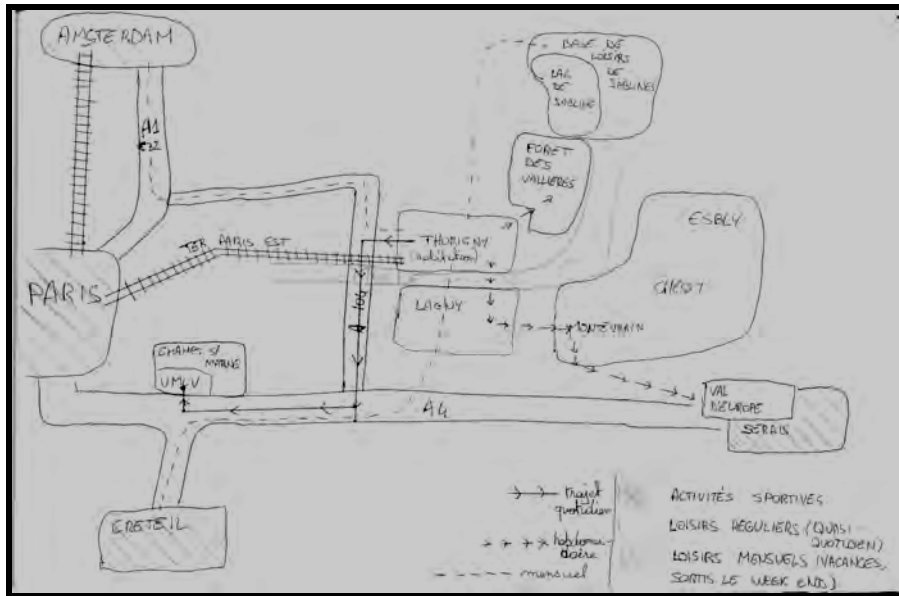 AMSTERDAM
BASE DE
LOISIRS
DE
SABLINES
LAC
DE
SABLINE
A1
FORET
DES
VALLIERES
ESBLY
TER PARIS EST
THORIGNY
(habitation)
PARIS
A 104
CHESSY
LAGNY
MONTEVRAIN
CHAMPS S/
MARNE
UMLV
VAL
D'EUROPE
A4
SERRIS
CRETEIL
trajet
quotidien
hebdoma-
daire
mensuel
ACTIVITÉS SPORTIVES
LOISIRS RÉGULIERS (QUASI
QUOTIDIEN)
LOISIRS MENSUELS (VACANCES,
SORTIS LE WEEK END)